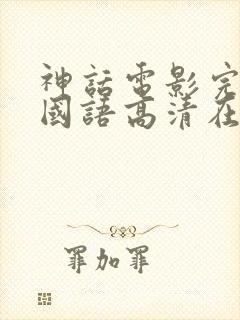 神話電影完
國語高清在
罪加罪